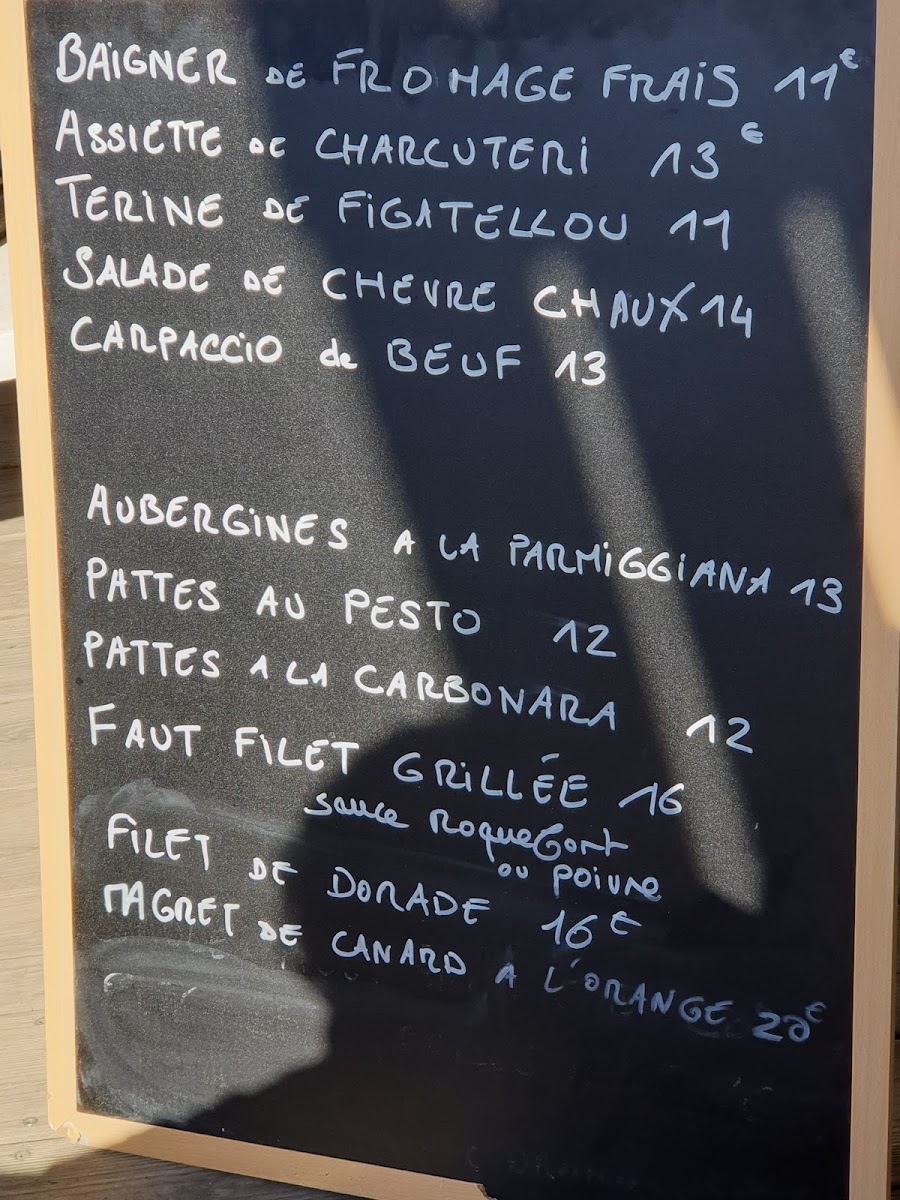 BAÏGNER DE FROMAGE FRAIS 11€
ASSIETTE DE CHARCUTERI 13€
TERINE DE FIGATELLOU 11
SALADE DE CHEVRE CHAUX 14
CARPACCIO de BEUF 13
AUBERGINES A LA PARMIGGIANA 13
PATTES AU PESTO 12
PATTES A LA CARBONARA 12
FAUT FILET GRILLÉE 16
sauce Roquefort
ou poivre
FILET DE DORADE 16€
MAGRET DE CANARD A L'ORANGE 20€